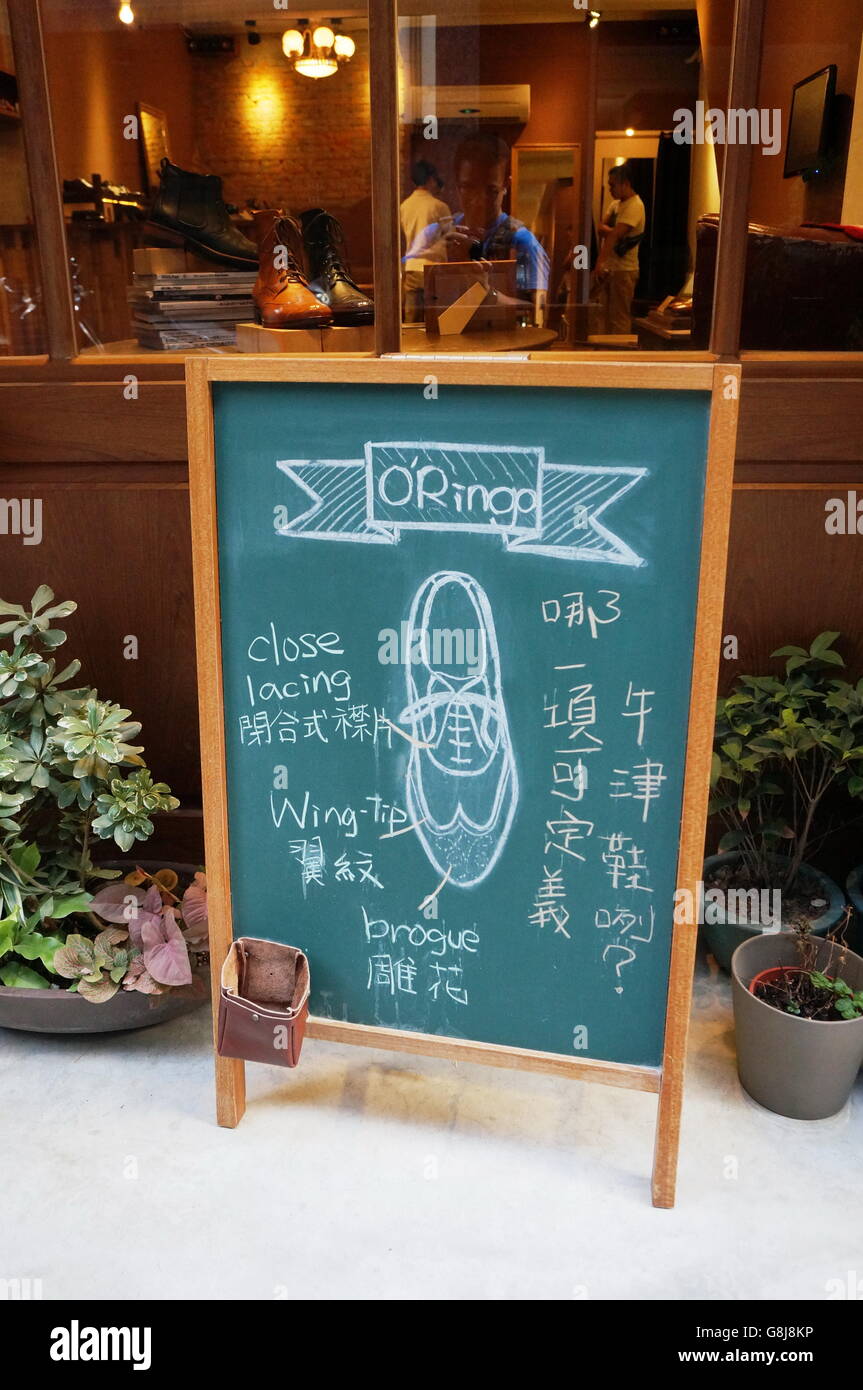 O'Ringo
close
lacing
閉合式襟片
Wing-tip
翼紋
brogue
雕花
牛津鞋咧?
哪一項可定義
alamy
Image ID: G8J8KP
www.alamy.com